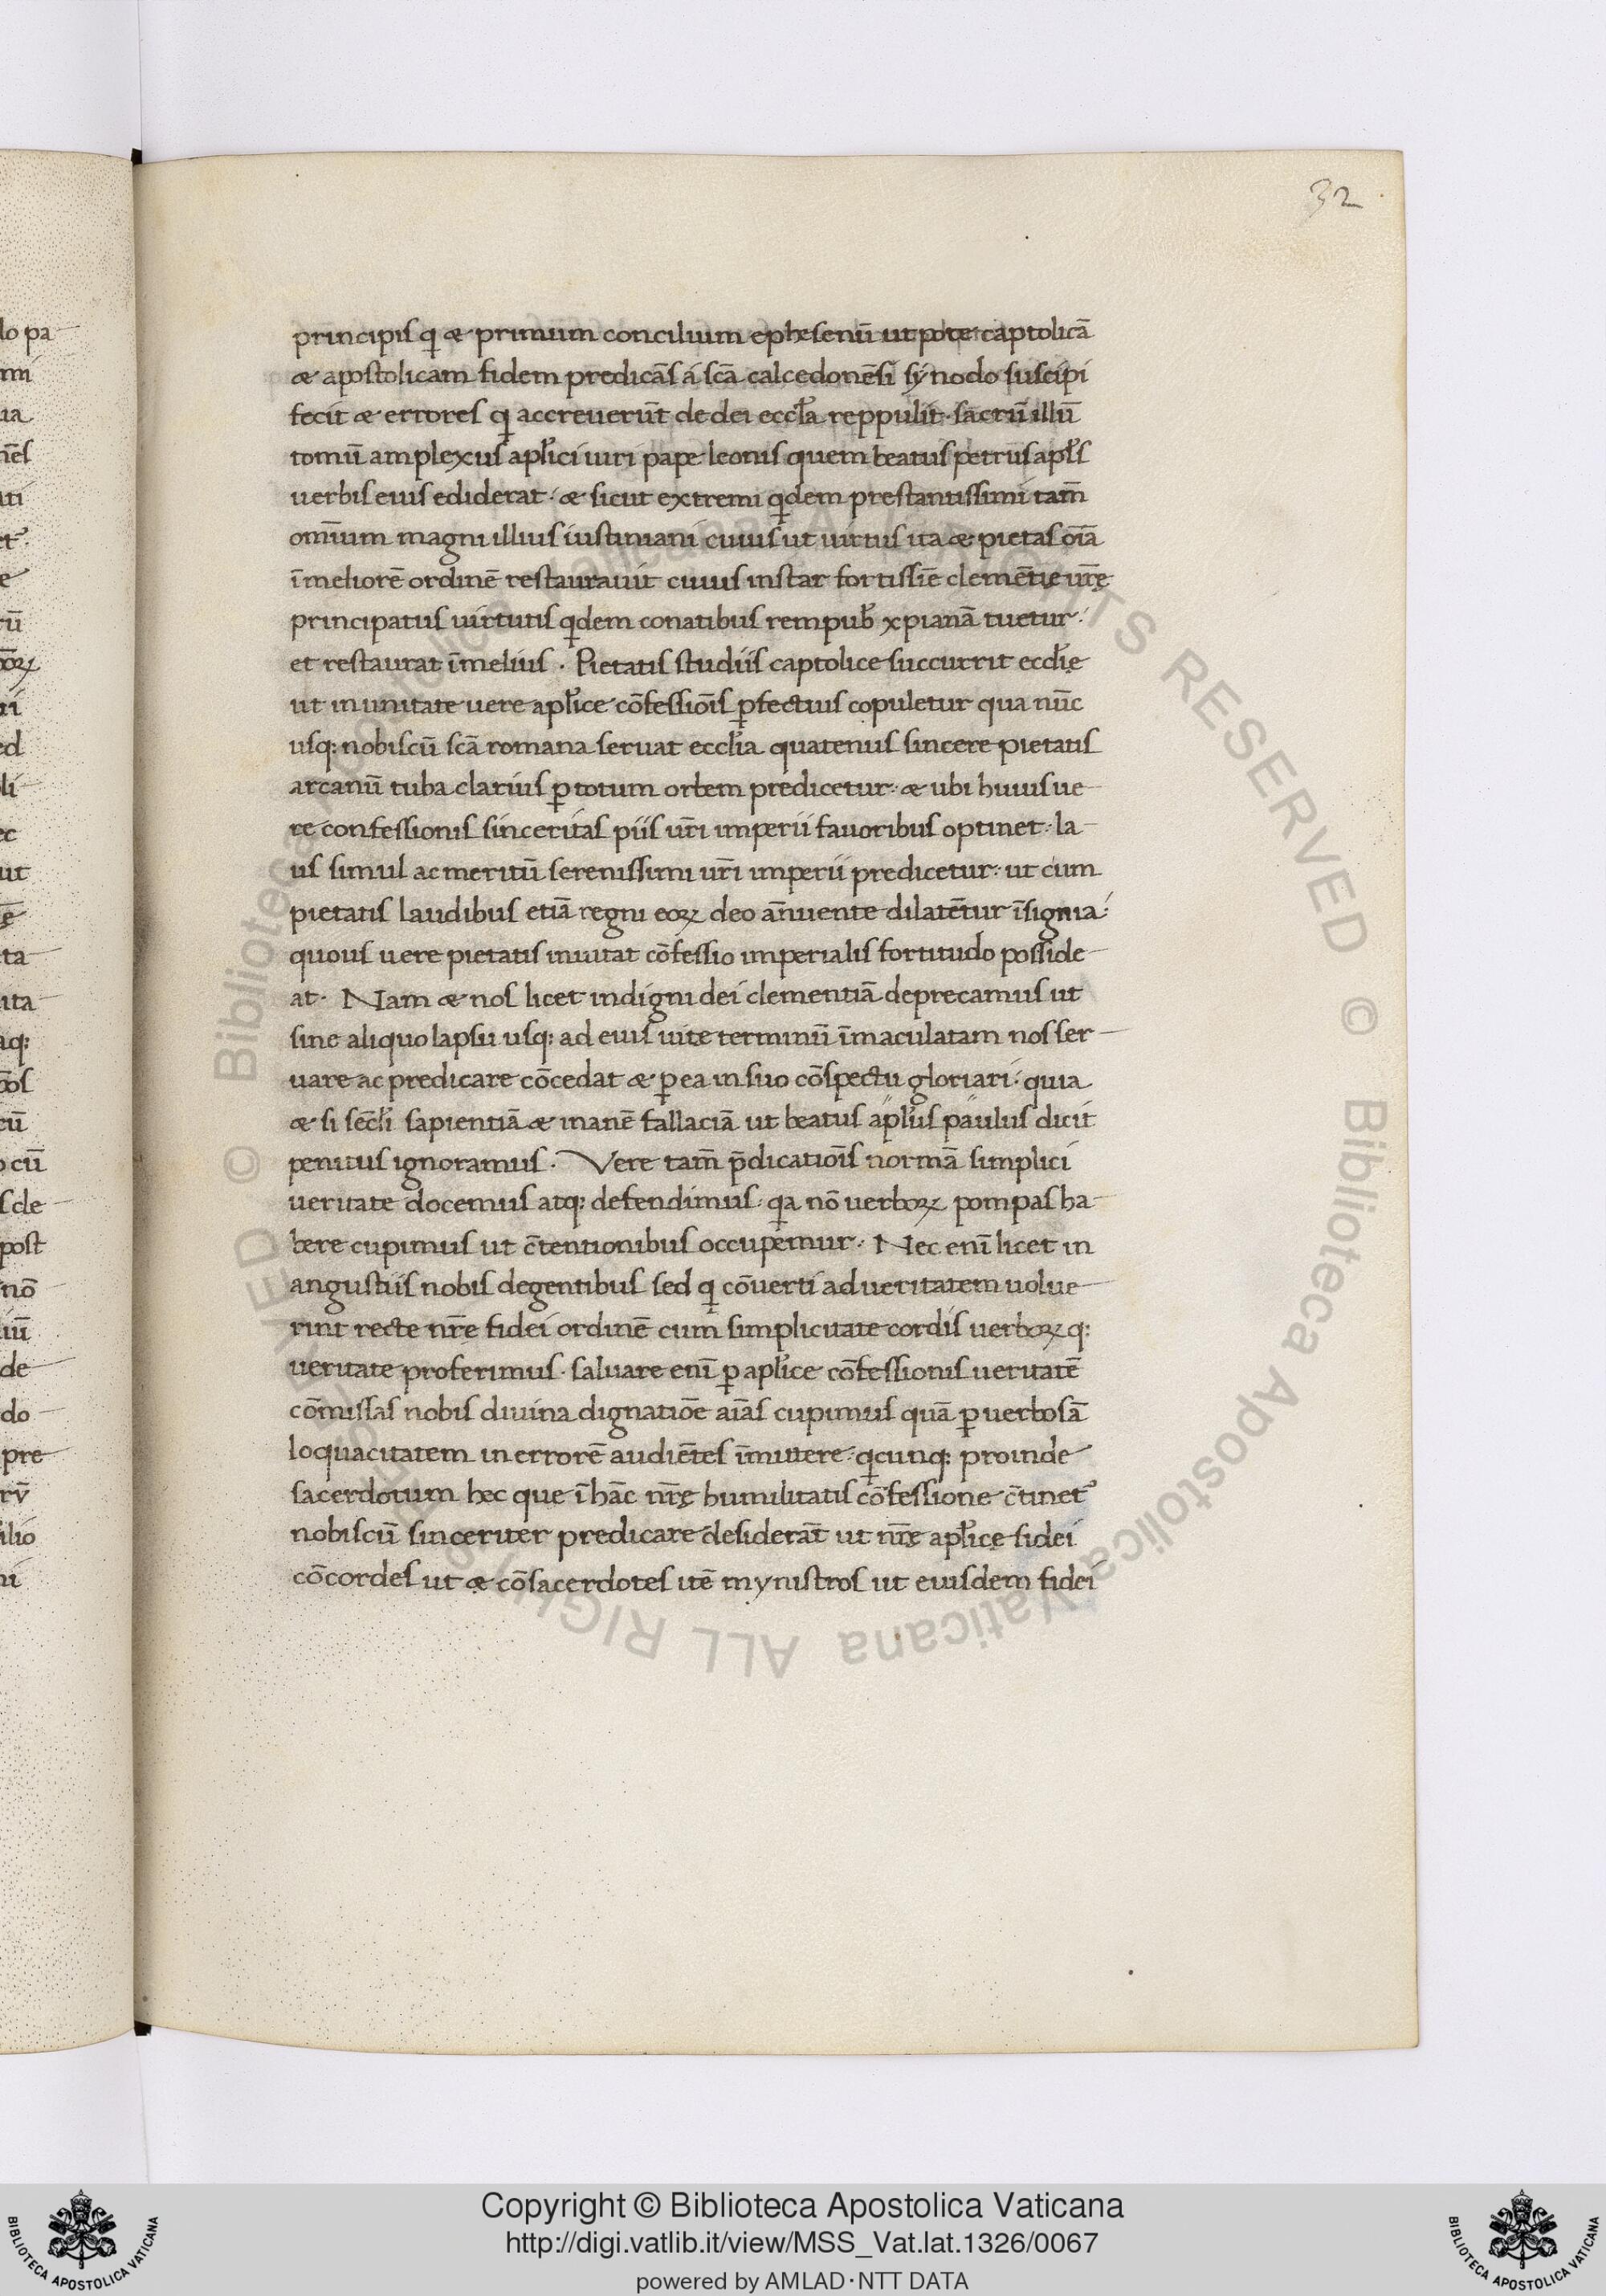 32
principis q̅ æ primum concilium ephesenū ut pote captolicā
æ apostolicam fidem predicās á sc̄a calcedonēsi sýnodo suscipi
fecit æ errores q̅ accreuerūt de dei eccl̄a reppulit · sacrū illū
tomū amplexus apl̄ici uiri pape leonis quem beatus petrus apl̄s
uerbis eius ediderat · æ sicut extremi q̅dem prestantissimi tam̄
om̄ium magni illius iustiniani cuius ut uirtus ita æ pietas oīa
ī meliorē ordinē restaurauit cuius instar fortissīe clemētię ur̄ę
principatus uirtutis q̅dem conatibus rempub̄ xp̄ianā tuetur ·
et restaurat ī melius · Pietatis studiis captolice succurrit eccl̄ię
ut in unitate uere apl̄ice cōfessiōis ꝑfectius copuletur qua nūc
usq: nobiscū sc̄a romana seruat eccl̄ia quatenus sincere pietatis
arcanū tuba clarius ꝑ totum orbem predicetur · æ ubi huius ue-
re confessionis sinceritas piis ur̄i imperii fauoribus optinet · la-
us simul ac meritū serenissimi ur̄i imperii predicetur · ut cum
pietatis laudibus etiā regni eoꝝ deo an̄uente dilatētur īsignia ·
quous uere pietatis inuitat cōfessio imperialis fortitudo posside-
at · Nam æ nos licet indigni dei clementiā deprecamus ut
sine aliquo lapsu usq: ad eius uite terminū īmaculatam nos ser-
uare ac predicare cōcedat æ ꝑ ea in suo cōspectu gloriari · quia
æ si sēcl̄i sapientiā æ inanē fallaciā ut beatus apl̄us paulus dicit
penitus ignoramus · Vere tam̄ p̄dicatiōis normā simplici
ueritate docemus atq: defendimus · q̅a nō uerboꝝ pompas ha-
bere cupimus ut c̄tentionibus occupemur · Nec enī licet in
angustiis nobis degentibus sed q̅ cōuerti ad ueritatem uolue-
rint recte nr̄e fidei ordinē cum simplicitate cordis uerboꝝ q:
ueritate proferimus · saluare enī ꝑ apl̄ice cōfessionis ueritatē
cōmissas nobis diuina dignatiōe aīas cupimus quā ꝑ uerbosā
loquacitatem in errorē audiētes īmittere · q̅cunq: proinde
sacerdotum hec que ī hāc nr̄ę humilitatis cōfessione c̄tinet᷒
nobiscū sinceriter predicare desiderāt ut nr̄ę apl̄icę fidei
cōcordes ut æ cōsacerdotes itē mynistros ut eiusdem fidei
Copyright © Biblioteca Apostolica Vaticana
http://digi.vatlib.it/view/MSS_Vat.lat.1326/0067
powered by AMLAD·NTT DATA